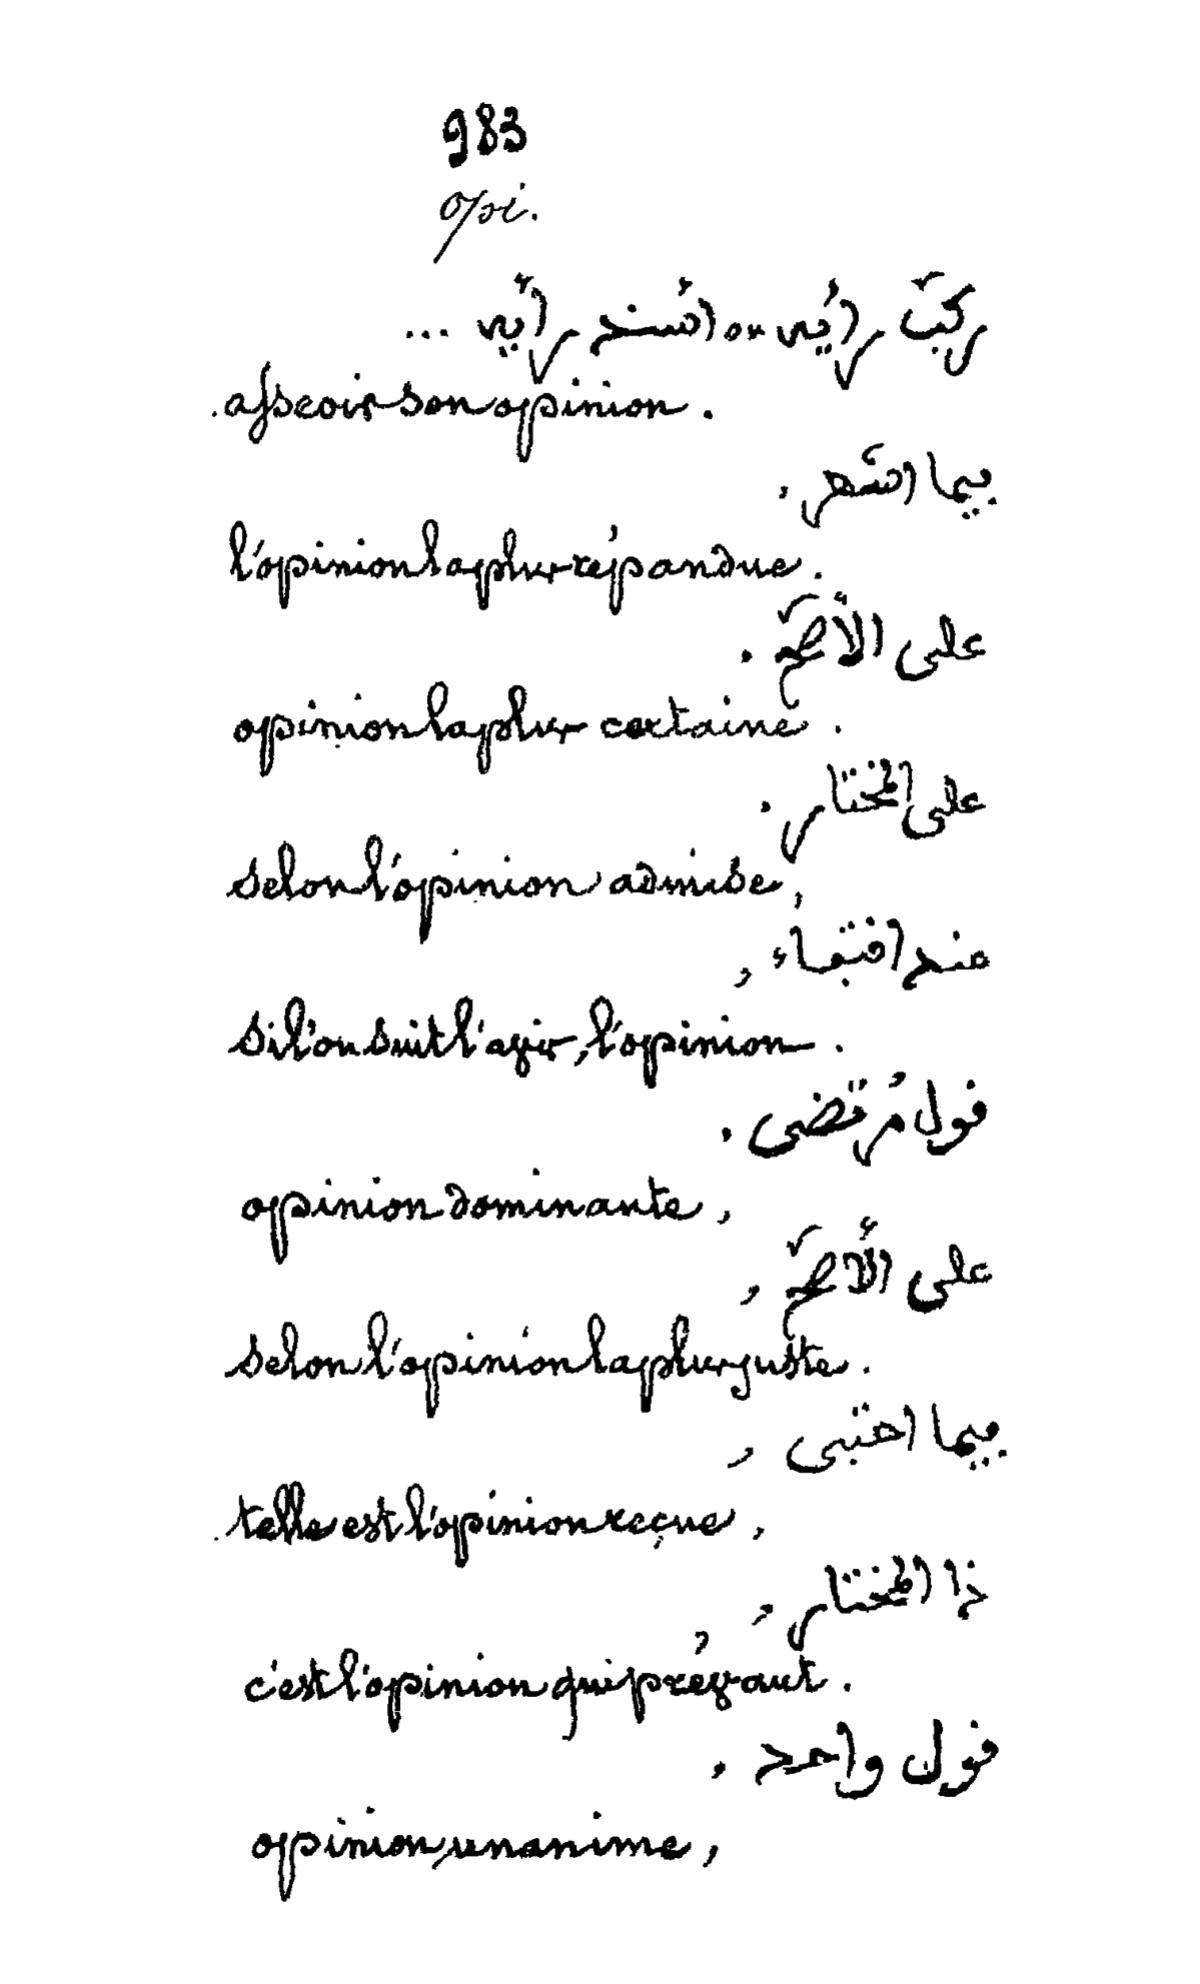 983
opi.
ركّب رأيه ou اسند رأيه ...
asseoir son opinion.
فيما اشتهر,
l'opinion la plus répandue.
على الأصحّ.
opinion la plus certaine.
على المختار.
selon l'opinion admise,
عند اقتفاء,
si l'on suit l'agir, l'opinion.
قول مُرتضى.
opinion dominante,
على الأصحّ,
selon l'opinion la plus juste.
فيما اجتبى,
telle est l'opinion reçue,
ذا المختار,
c'est l'opinion qui prévaut.
قول واحد.
opinion unanime,